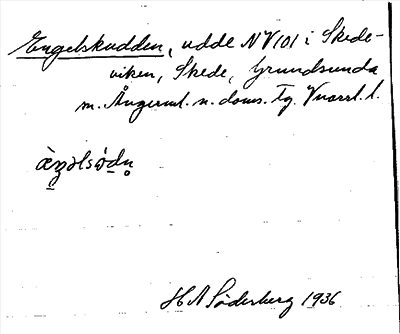 Engelskudden, udde NV(O) i Skede-
viken, Skede, Grundsunda
m. Ångerml. n. doms. Tg. Vnorrl. l.
H A Söderberg 1936